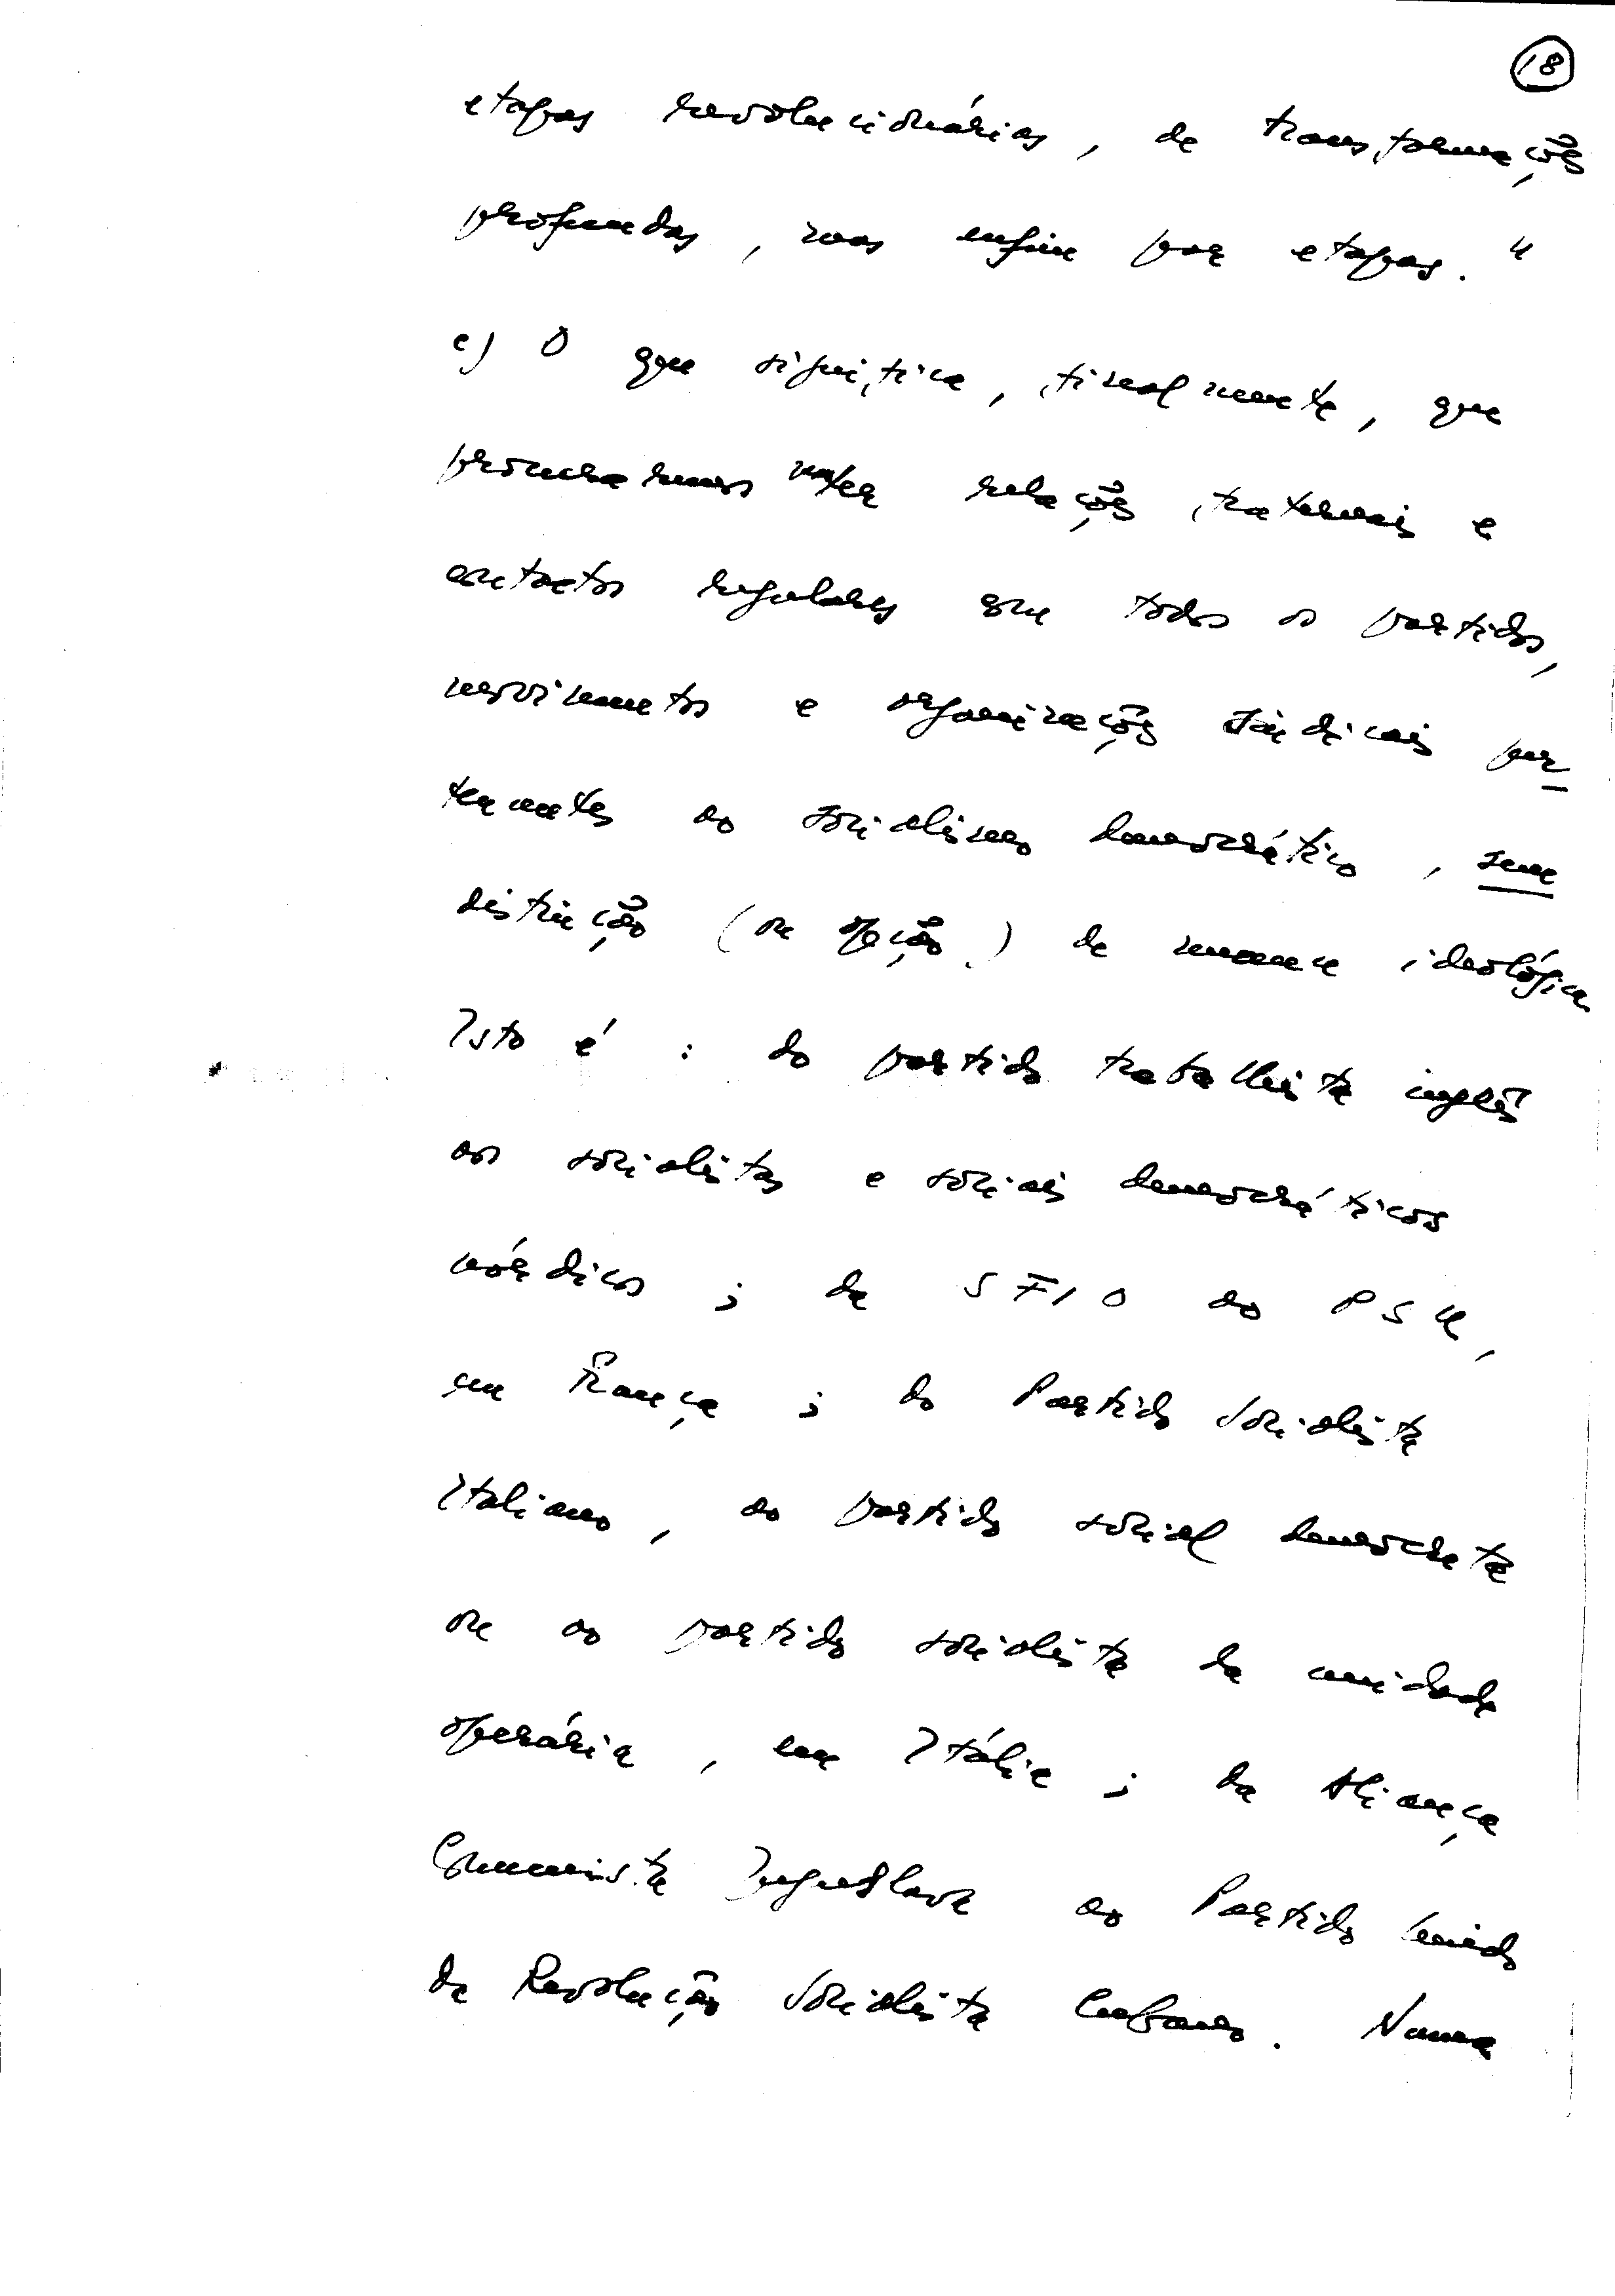 18
etapas revolucionárias, de transformações
profundas, mas enfim por etapas."
c) O que significa, finalmente, que
procuraremos ter relações fraternais e
contactos regulares com todos os partidos,
movimentos e organizações sindicais per-
tencentes ao socialismo democrático, sem
distinção (ou opção) de nuance ideológica
Isto é: do partido trabalhista inglês
aos socialistas e sociais democráticos
nórdicos; da SFIO ao PSU,
em França; do Partido Socialista
Italiano, ao partido social democrata
ou ao partido socialista da unidade
operária, em Itália; da Aliança
Comunista Jugoslava ao Partido Unido
da Revolução Socialista Cubano. Numa